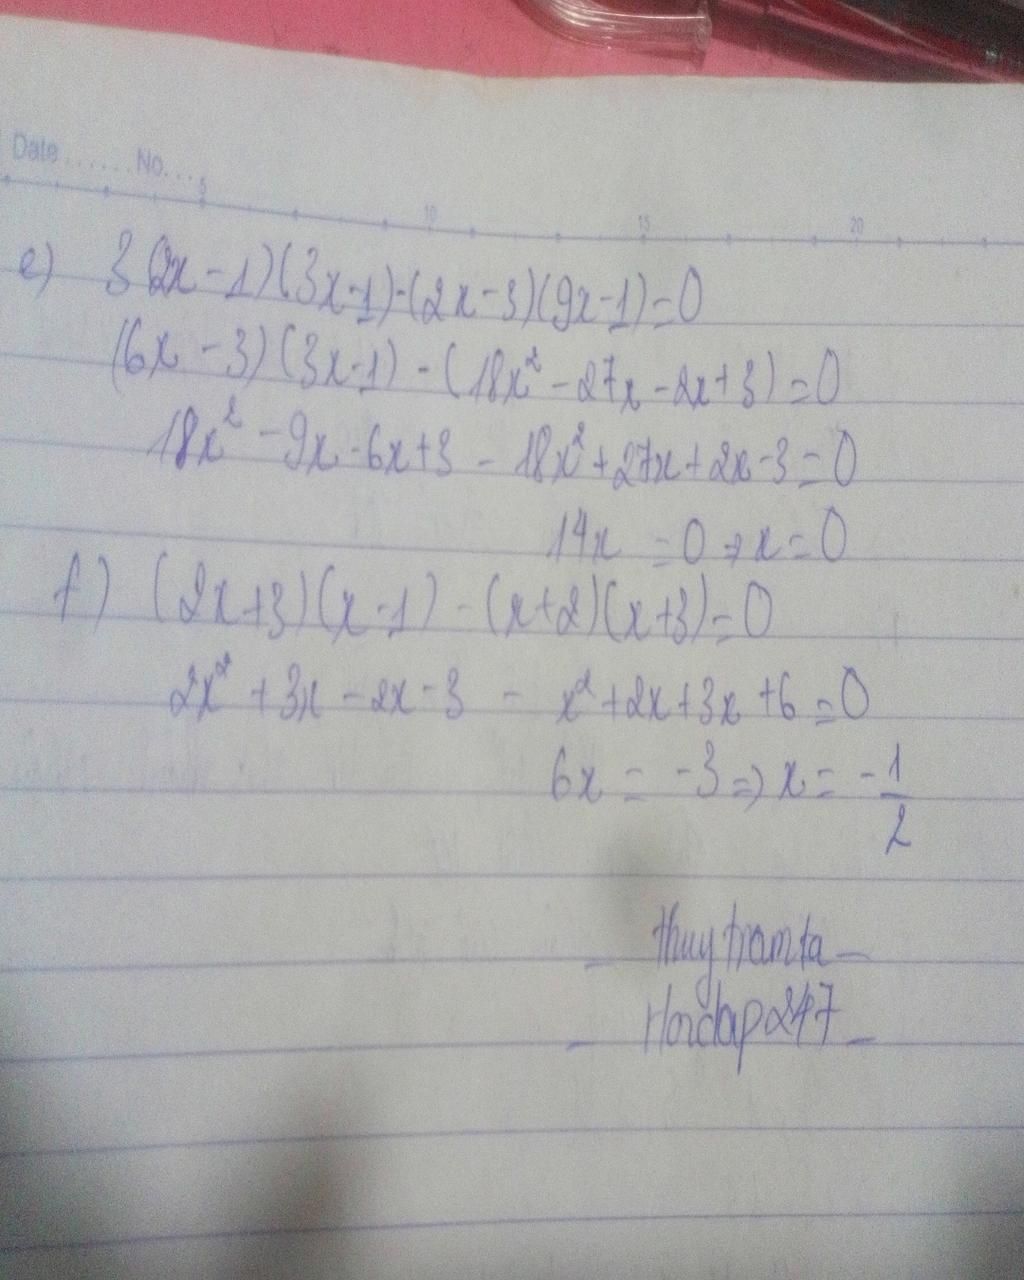 Date ...... No....
5 10 15 20
e) 3(2x-1)(3x-1)-(2x-3)(9x-1)=0
(6x-3)(3x-1)-(18x²-27x-2x+3)=0
18x²-9x-6x+3-18x²+27x+2x-3=0
14x=0⇒x=0
f) (2x+3)(x-1)-(x+2)(x+3)=0
2x²+3x-2x-3 - x²+2x+3x+6=0
6x = -3 ⇒ x = -1/2
- thuytramta -
- Hoidap247 -